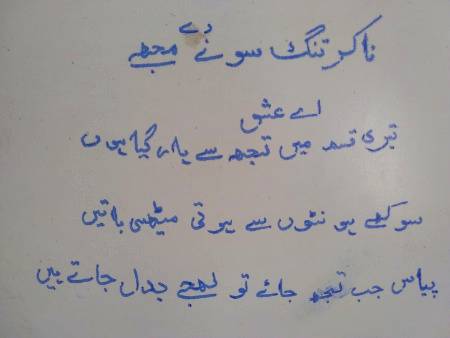 نا کر تنگ سونے دے مجھے
اے عشق
تیری قسم میں تجھ سے ہار گیا ہوں
سوکھے ہونٹوں سے ہوتی میٹھی باتیں
پیاس جب بجھ جائے تو لہجے بدل جاتے ہیں